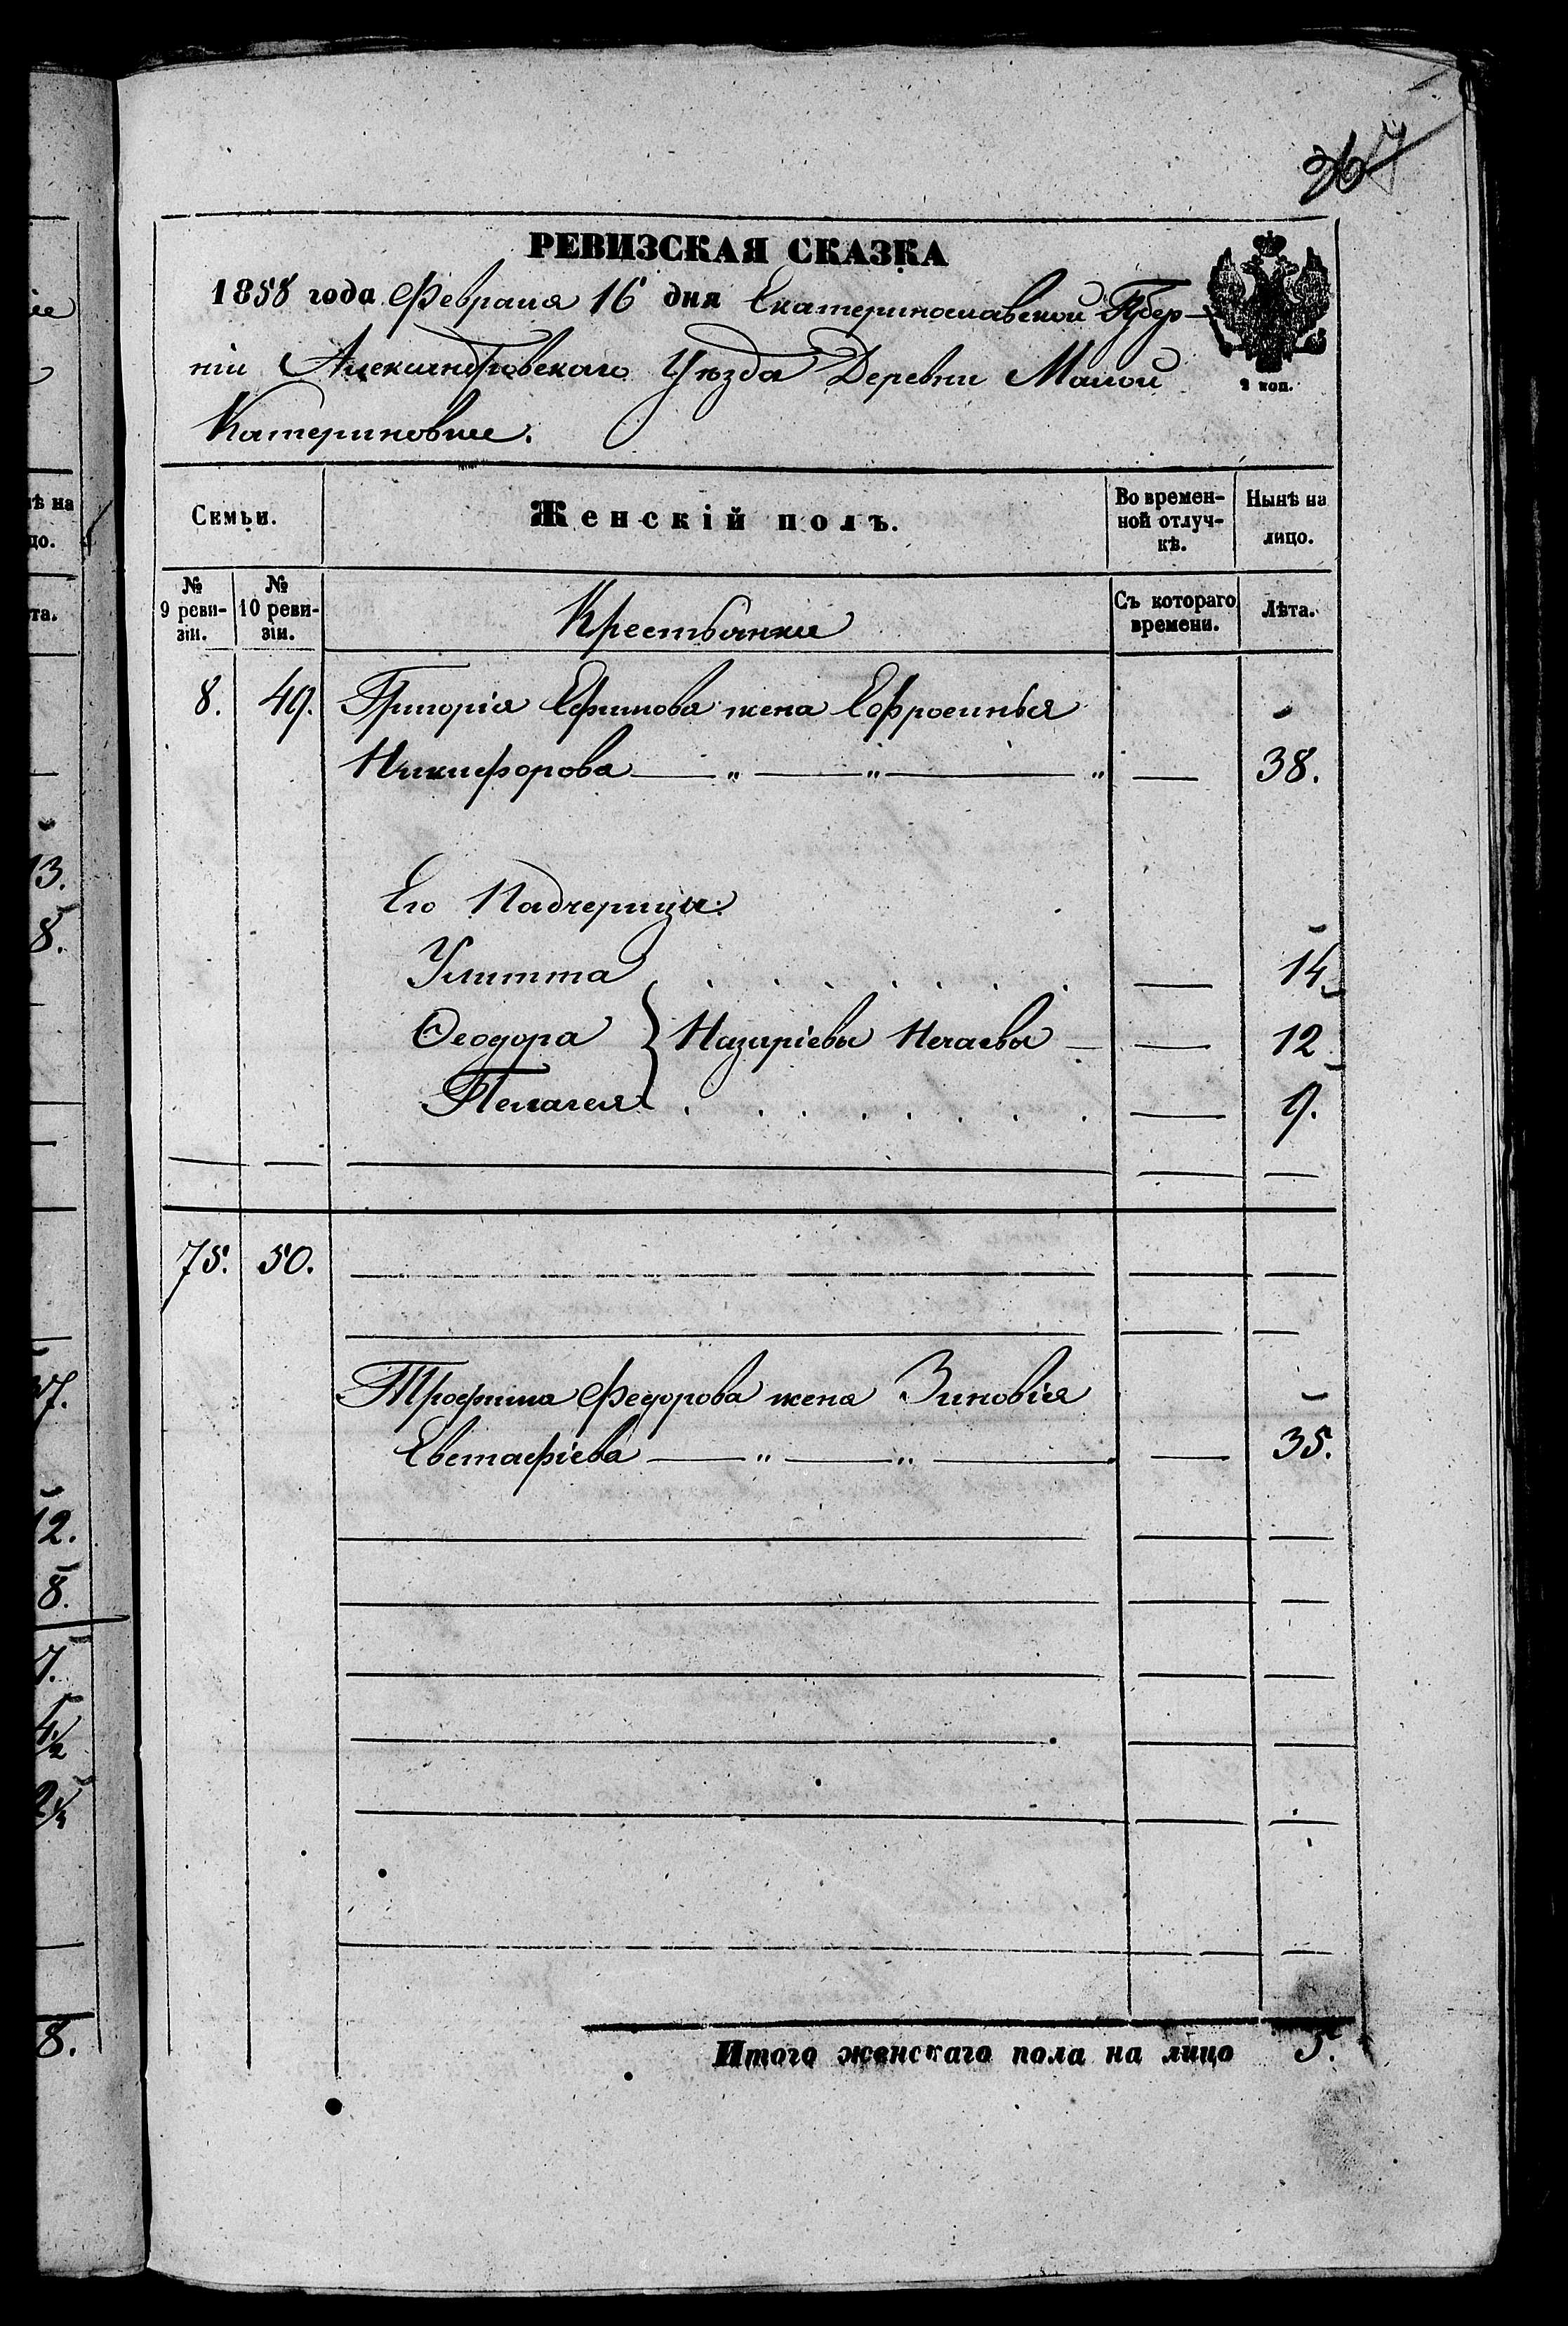 267
РЕВИЗСКАЯ СКАЗКА
1858 года Февраля 16 дня Екатеринославской Губер-
ніи Александровскаго Уѣзда Деревни Малой
Катериновки.
2 коп.
Семьи.
Женскій полъ.
Во времен-
ной отлуч-
кѣ.
Нынѣ на
лицо.
№
9 реви-
зіи.
№
10 реви-
зіи.
Крестьянки
Съ котораго
времени.
Лѣта.
8. 49. Григорія Ефимова жена Ефросинья
Никифорова — „ — „ — „ — 38.
Его Падчерицы:
Улитта . . . . . . . — 14
Ѳеодора } Назаріевы Нечаевы — — 12
Пелагея . . . . . . . — 9.
75. 50.
Трофима Федорова жена Зиновія
Евстафіева — „ — „ — — 35.
Итого женскаго пола на лицо 5.
ѣ на
цо.
та.
13.
8.
37.
12.
8.
7.
8.